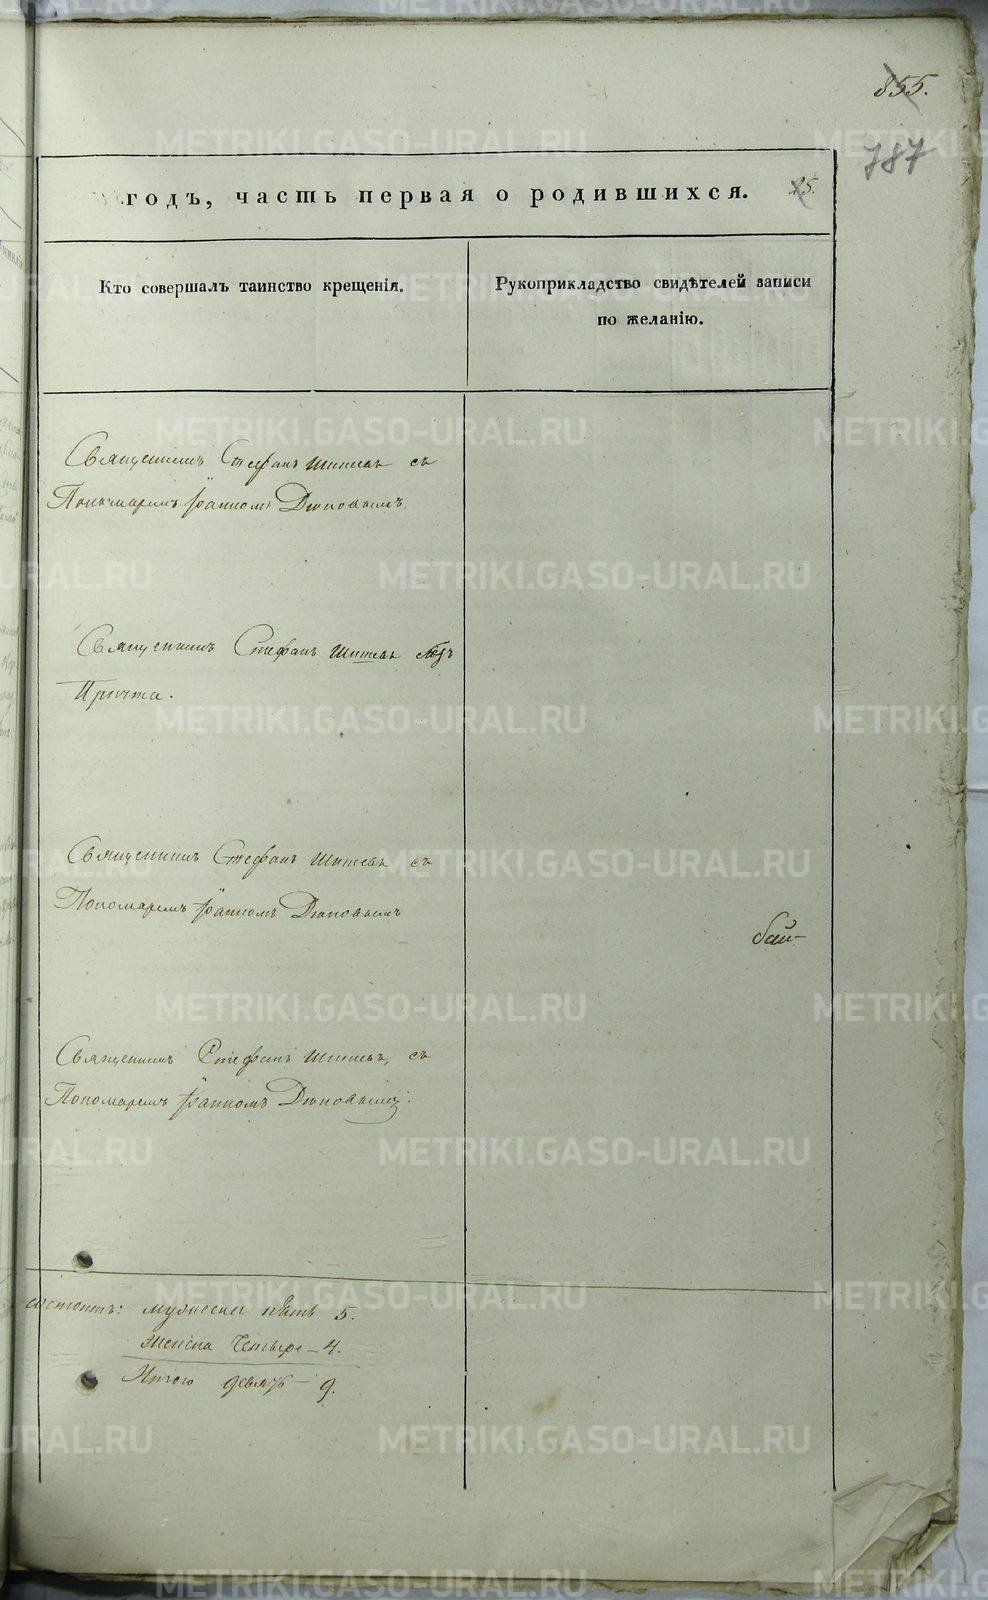 855.
787
годъ, часть первая о родившихся. 25.
Кто совершалъ таинство крещенія.
Рукоприкладство свидѣтелей записи
по желанію.
Священникъ Стефанъ Шишевъ съ
Пономаремъ Іоанномъ Дюповымъ.
Священникъ Стефанъ Шишевъ безъ
Причта.
Священникъ Стефанъ Шишевъ съ
Пономаремъ Іоанномъ Дюповымъ
бай-
Священникъ Стефанъ Шишевъ, съ
Пономаремъ Іоанномъ Дюповымъ.
состоитъ: мужеска пять 5.
Женска Четыре - 4.
Итого девять - 9.
METRIKI.GASO-URAL.RU